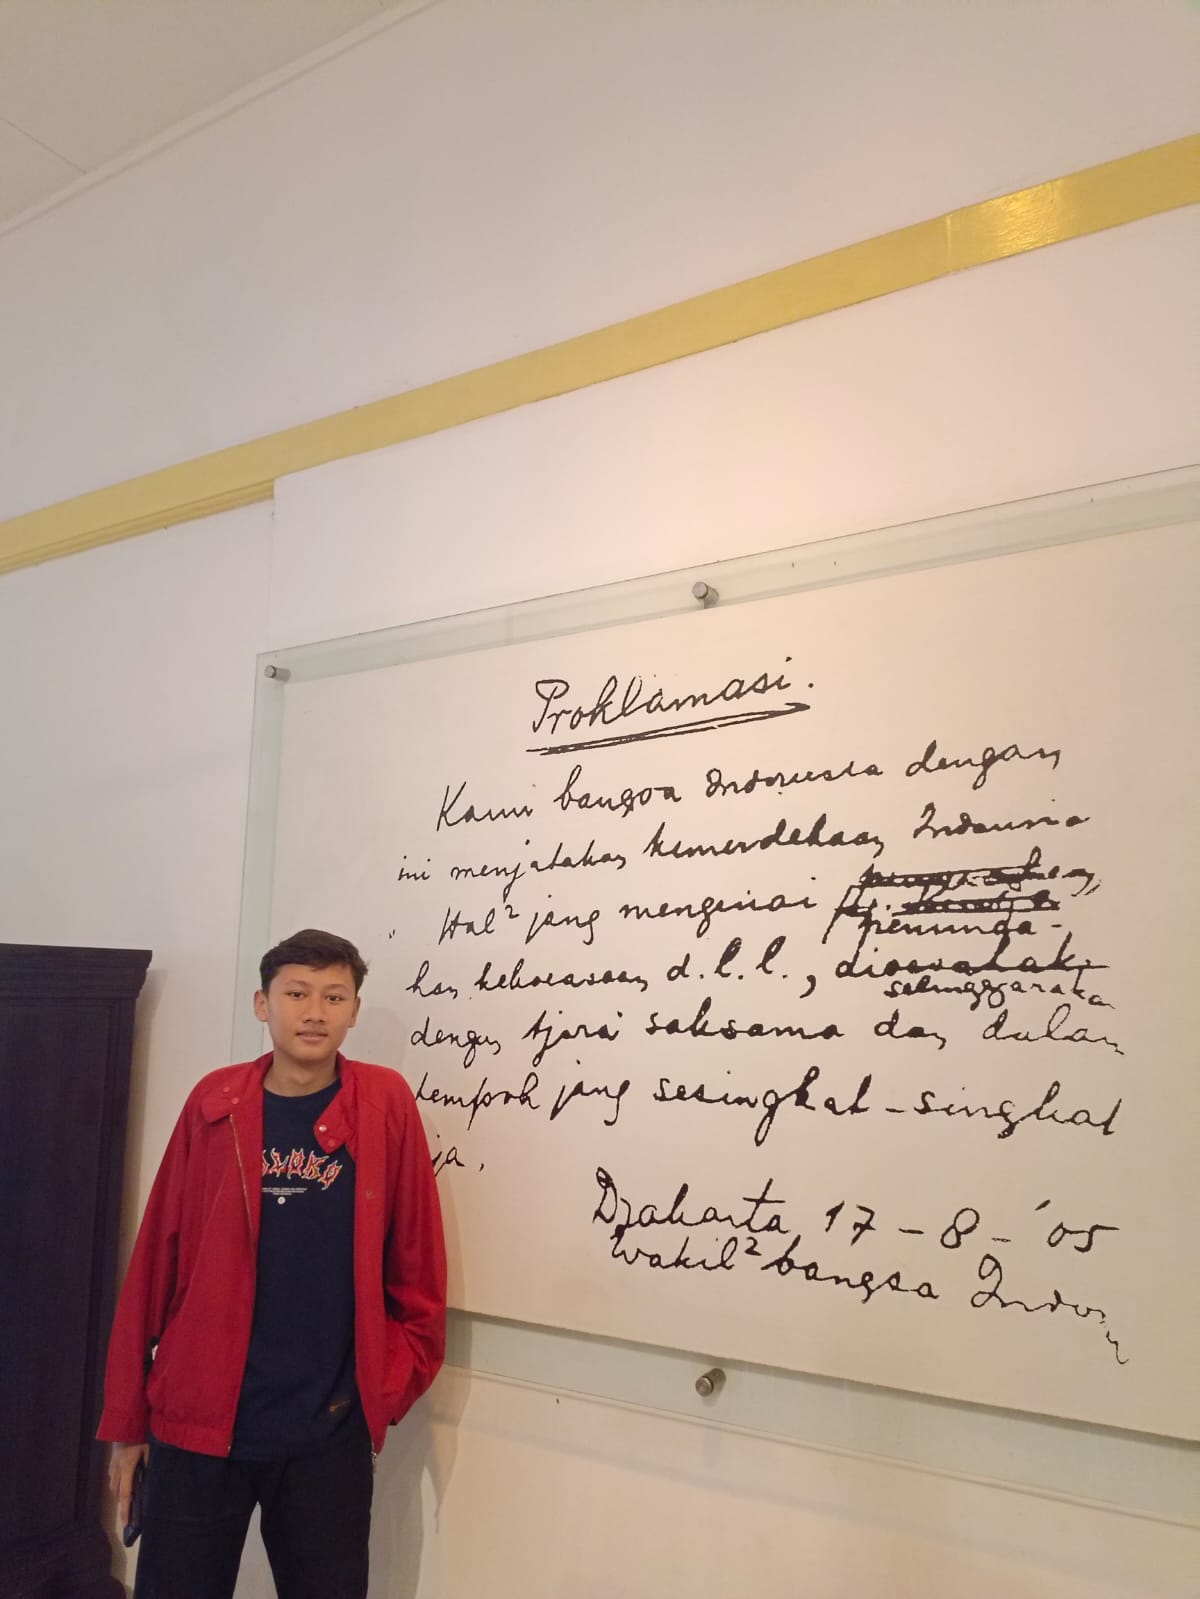 Proklamasi.
Kami bangsa Indonesia dengan
ini menjatakan kemerdekaan Indonesia
Hal² jang mengenai
peminda-
han kekoeasaan d.l.l., dioesahakan
selenggarakan
dengan tjara saksama dan dalam
tempoh jang sesingkat-singkat
ja.
Djakarta 17-8-'05
Wakil² bangsa Indon